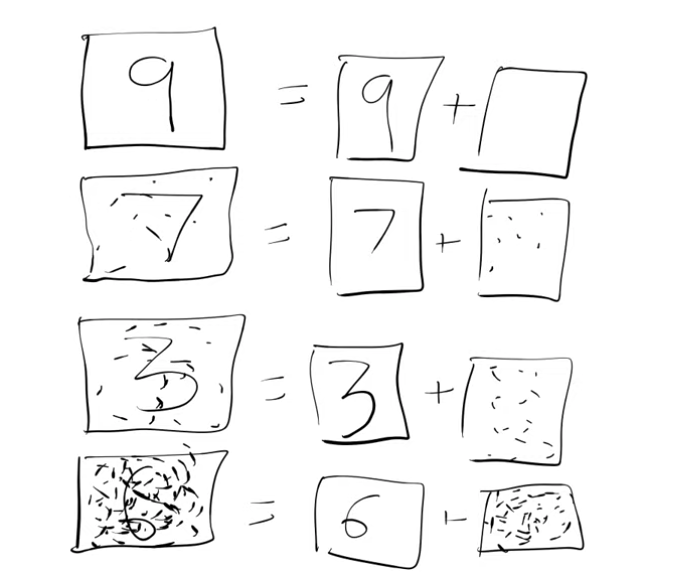 9 = 9 +
7 = 7 +
3 = 3 +
6 = 6 +